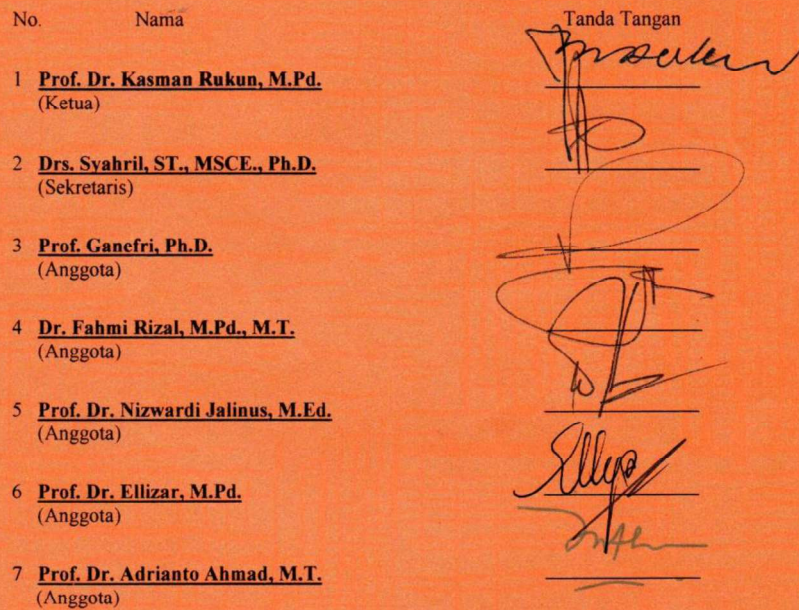 No. Nama Tanda Tangan
1 Prof. Dr. Kasman Rukun, M.Pd.
(Ketua)
2 Drs. Syahril, ST., MSCE., Ph.D.
(Sekretaris)
3 Prof. Ganefri, Ph.D.
(Anggota)
4 Dr. Fahmi Rizal, M.Pd., M.T.
(Anggota)
5 Prof. Dr. Nizwardi Jalinus, M.Ed.
(Anggota)
6 Prof. Dr. Ellizar, M.Pd.
(Anggota)
7 Prof. Dr. Adrianto Ahmad, M.T.
(Anggota)